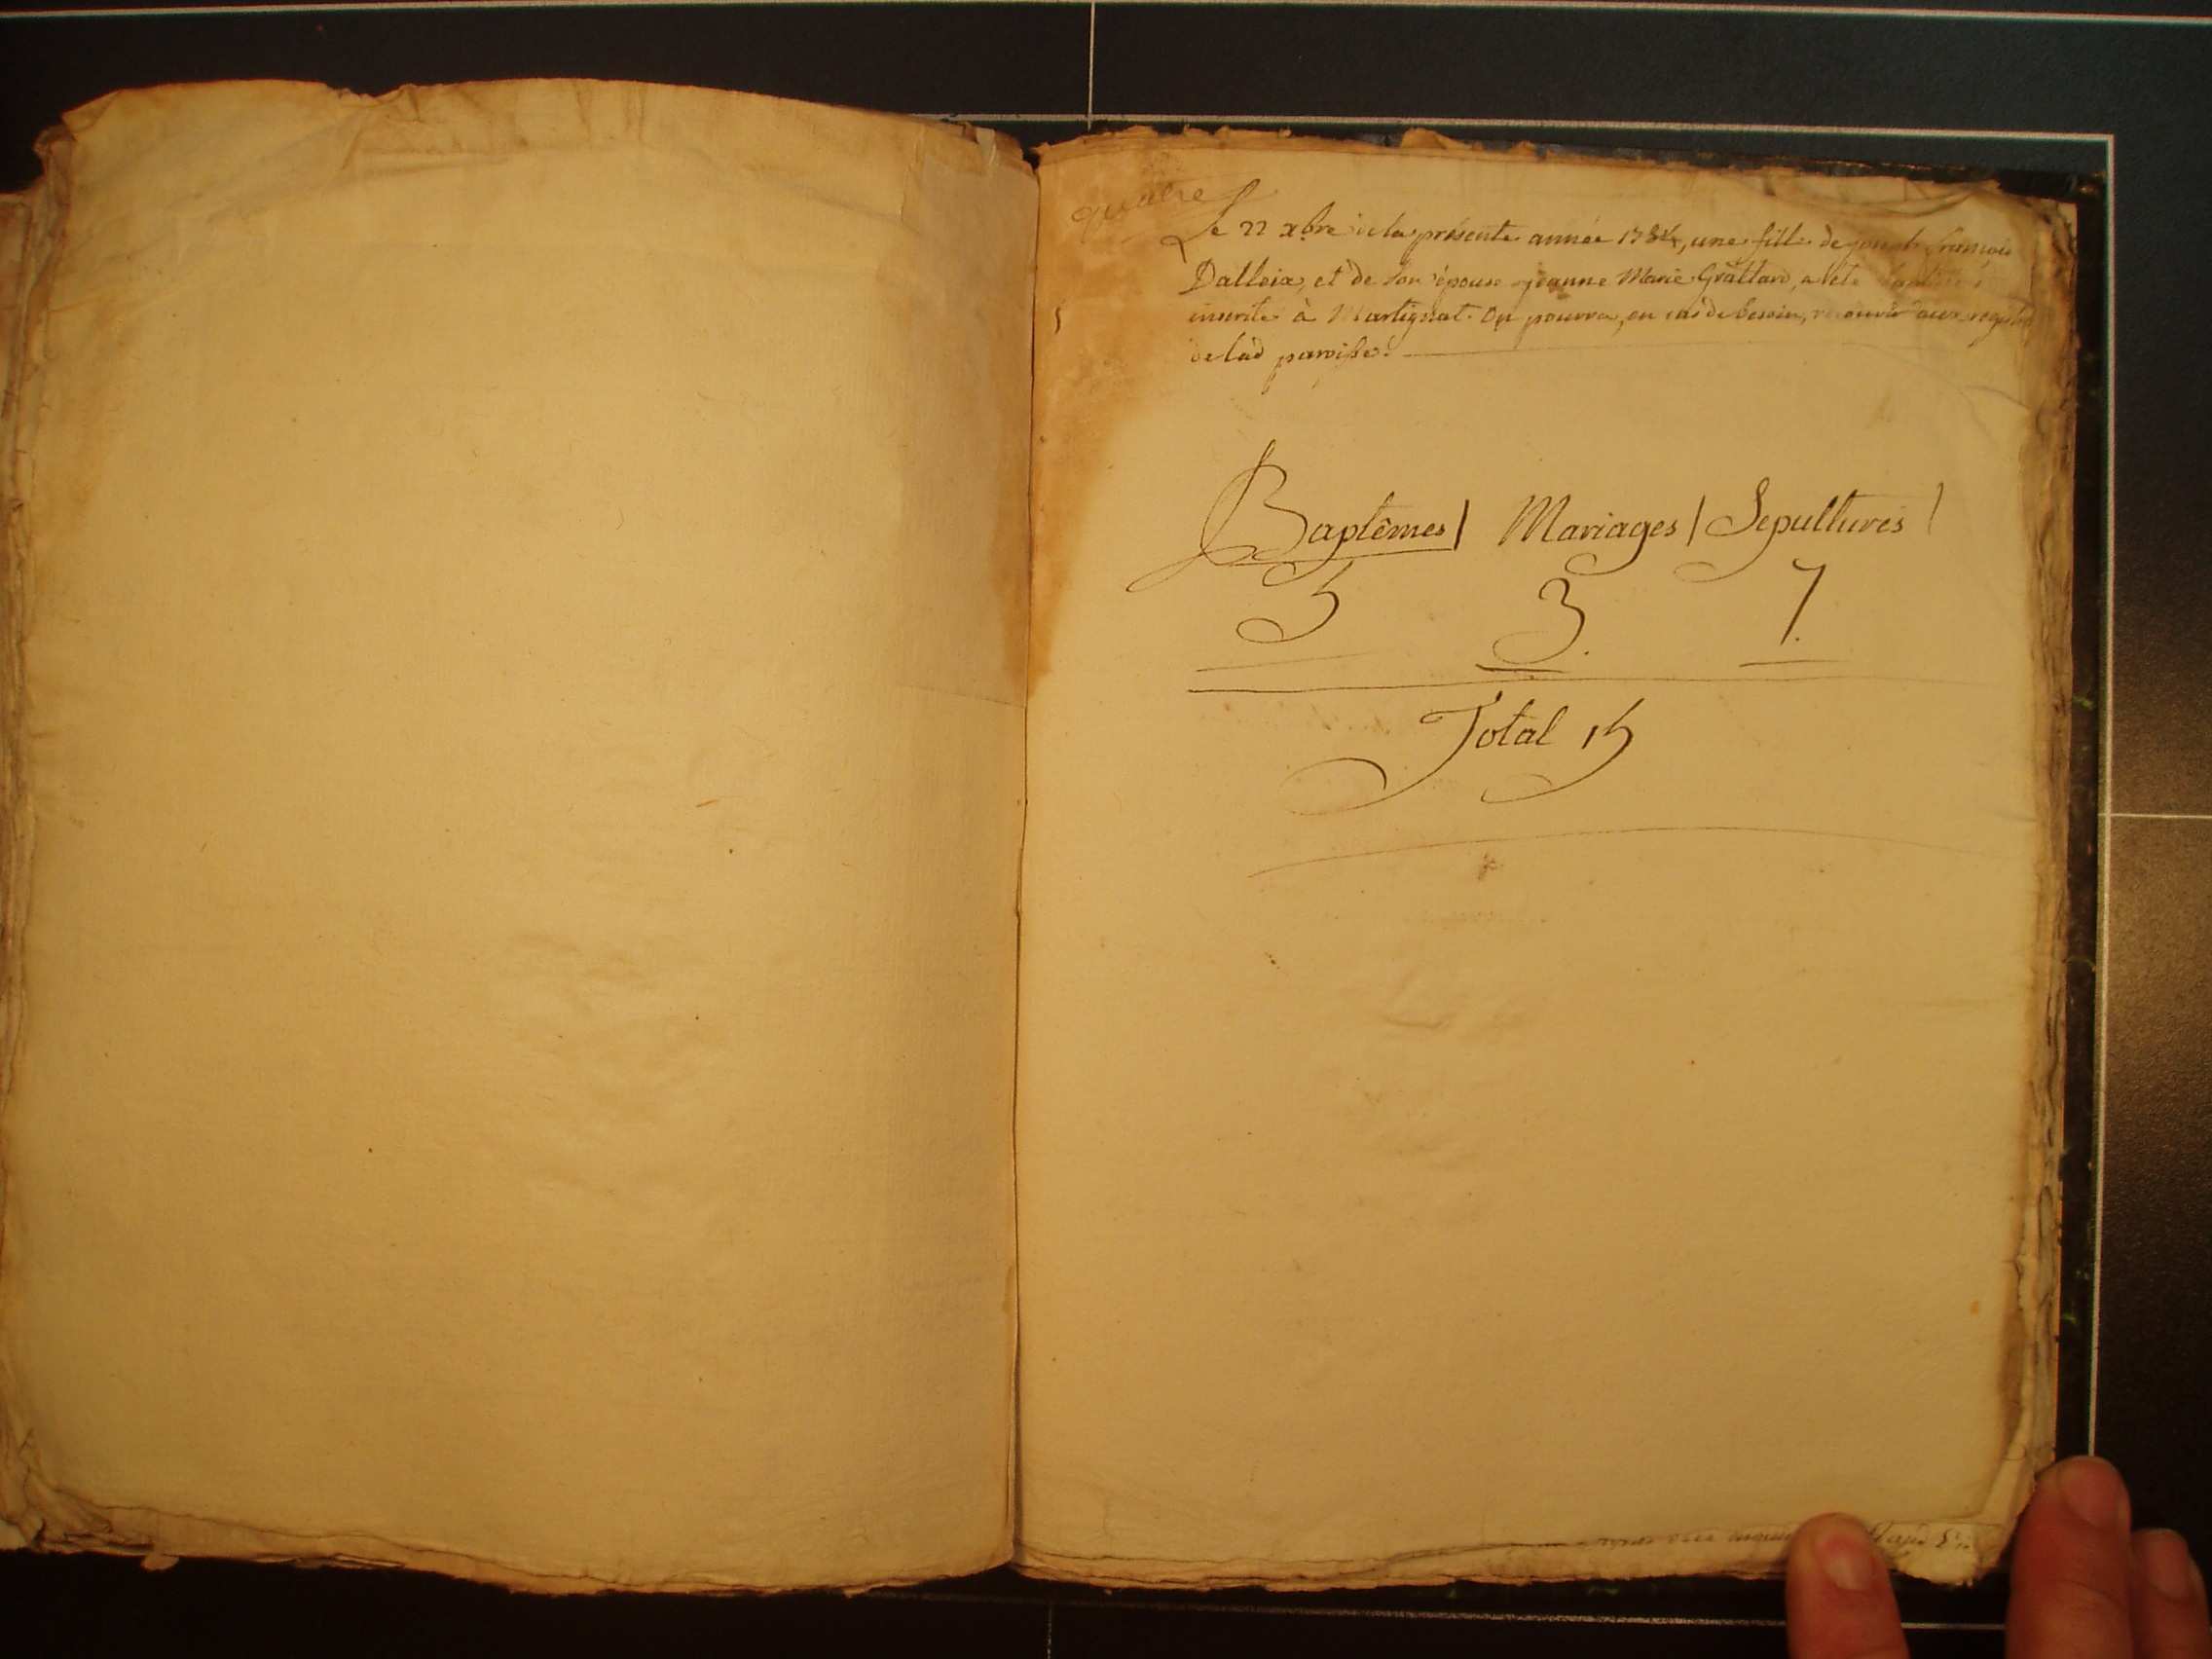 quatre
Le 22 xbre de la présente année 1784, une fille de joseph françois
Dalloix, et de son épouse jeanne Marie Grattard, a été baptisée
inscrite à Martignat. On pourra, en cas de besoin, recourir aux registres
de lad paroisse.
Baptêmes | Mariages | Sepultures |
5 3. 7.
Total 15